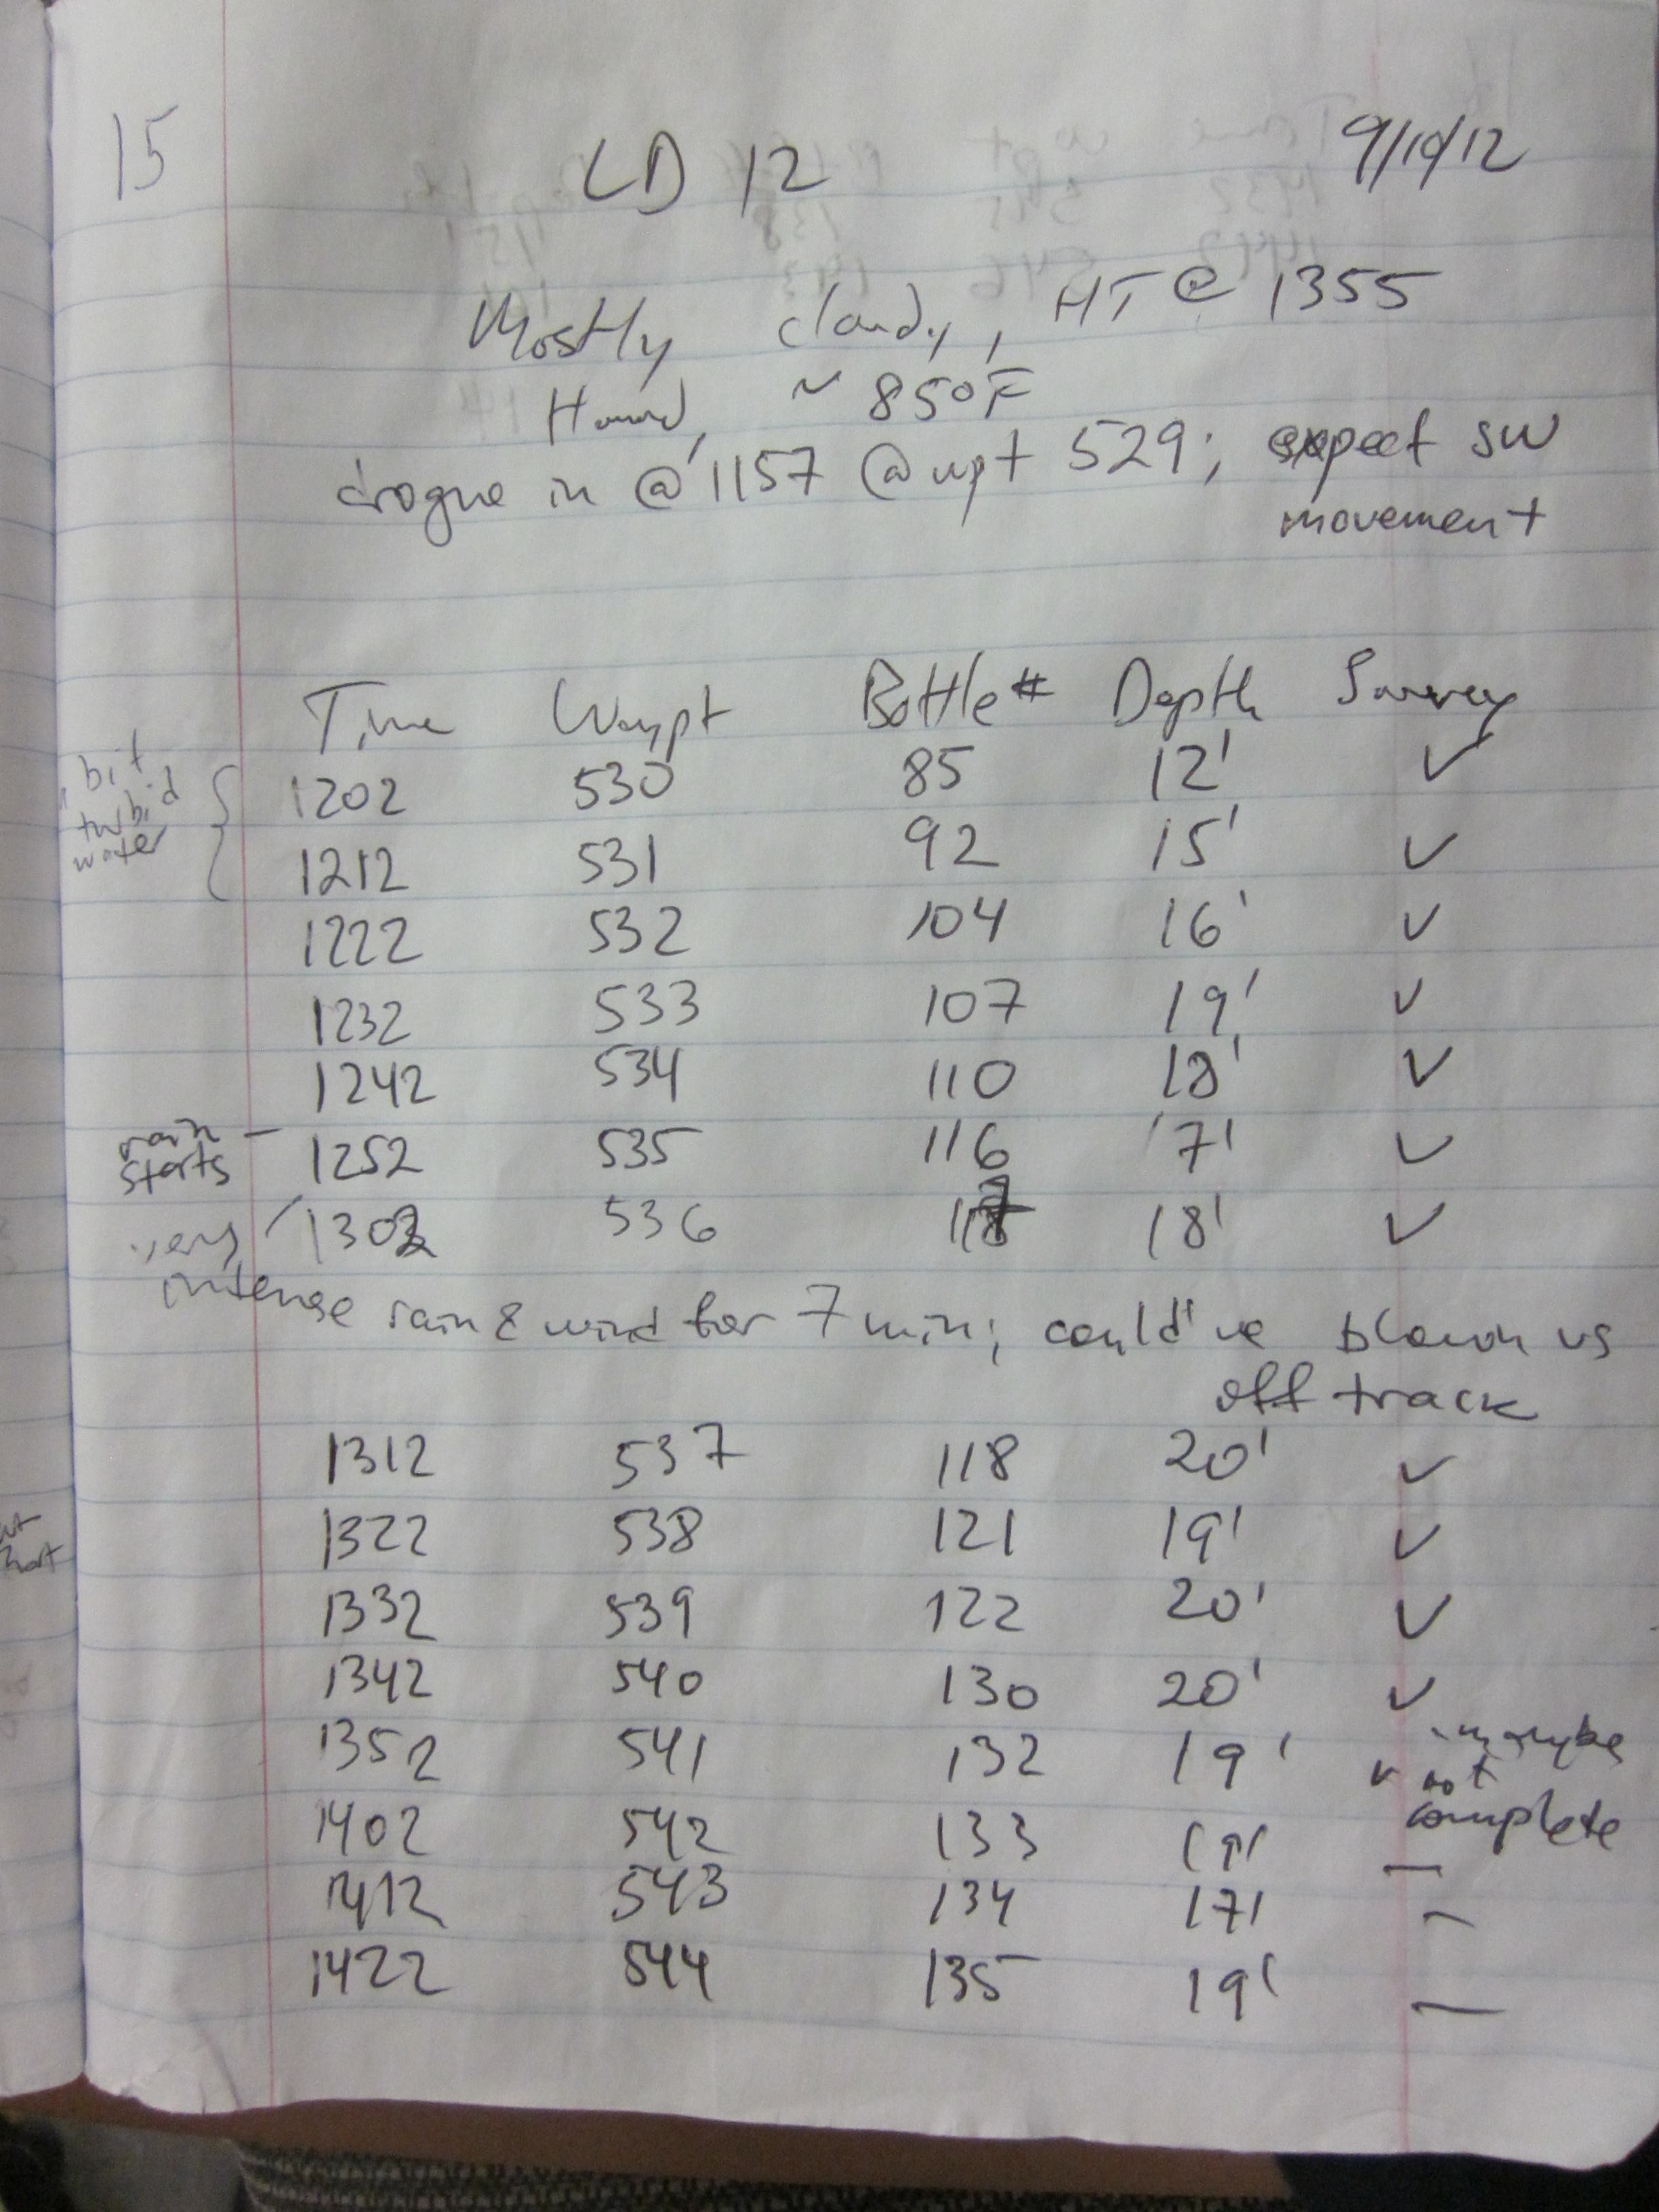 15 LD 12 9/10/12
Mostly cloudy, HT @ 1355
~ 85°F
drogue in @ 1157 @ wpt 529; expect SW
movement
Time Waypt Bottle# Depth Survey
bit
turbid
water
1202 530 85 12' ✓
1212 531 92 15' ✓
1222 532 104 16' ✓
1232 533 107 19' ✓
1242 534 110 18' ✓
rain
starts – 1252 535 116 17' ✓
very / 1302 536 117 18' ✓
intense rain & wind for 7 min; could've blown us
off track
1312 537 118 20' ✓
1322 538 121 19' ✓
1332 539 122 20' ✓
1342 540 130 20' ✓
1352 541 132 19' ✓ maybe
not
complete
1402 542 133 19' —
1412 543 134 17' —
1422 544 135 19' —